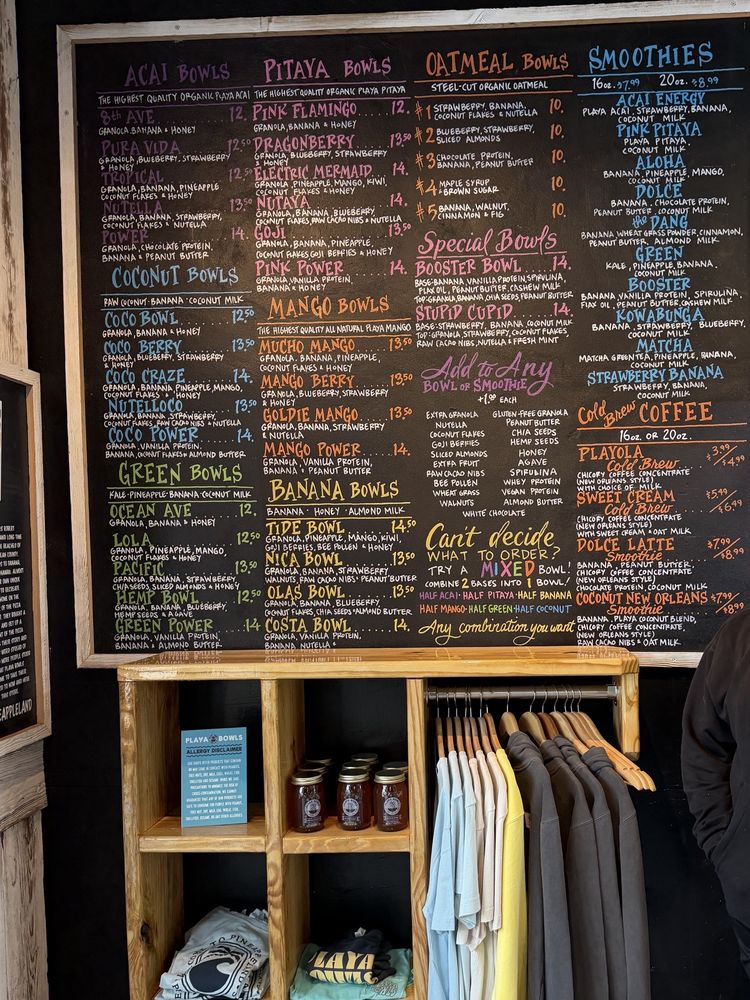 ACAI BOWLS
THE HIGHEST QUALITY ORGANIC PLAYA ACAI
8th AVE 12.
GRANOLA, BANANA & HONEY
PURA VIDA 12.50
GRANOLA, BLUEBERRY, STRAWBERRY
& HONEY
TROPICAL 12.50
GRANOLA, BANANA, PINEAPPLE
COCONUT FLAKES & HONEY
NUTELLA 13.50
GRANOLA, BANANA, STRAWBERRY,
COCONUT FLAKES & NUTELLA
POWER 14.
GRANOLA, CHOCOLATE PROTEIN,
BANANA & PEANUT BUTTER
COCONUT BOWLS
RAW COCONUT · BANANA · COCONUT MILK
COCO BOWL 12.50
GRANOLA, BANANA & HONEY
COCO BERRY 13.50
GRANOLA, BLUEBERRY, STRAWBERRY
& HONEY
COCO CRAZE 14.
GRANOLA, BANANA, PINEAPPLE, MANGO,
COCONUT FLAKES & HONEY
NUTELLOCO 13.50
GRANOLA, BANANA, STRAWBERRY,
COCONUT FLAKES, RAW CACAO NIBS & NUTELLA
COCO POWER 14.
GRANOLA, VANILLA PROTEIN,
BANANA, COCONUT FLAKES & ALMOND BUTTER
GREEN BOWLS
KALE · PINEAPPLE · BANANA · COCONUT MILK
OCEAN AVE 12.
GRANOLA, BANANA & HONEY
LOLA 12.50
GRANOLA, PINEAPPLE, MANGO,
COCONUT FLAKES & HONEY
PACIFIC 13.50
GRANOLA, BANANA, STRAWBERRY,
CHIA SEEDS, SLICED ALMONDS & HONEY
HEMP BOWL 12.50
GRANOLA, BANANA, BLUEBERRY,
HEMP SEEDS & AGAVE
GREEN POWER 14
GRANOLA, VANILLA PROTEIN,
BANANA & ALMOND BUTTER
PITAYA BOWLS
THE HIGHEST QUALITY ORGANIC PLAYA PITAYA
PINK FLAMINGO 12.
GRANOLA, BANANA & HONEY
DRAGONBERRY 13.50
GRANOLA, BLUEBERRY, STRAWBERRY
& HONEY
ELECTRIC MERMAID 14.
GRANOLA, PINEAPPLE, MANGO, KIWI,
COCONUT FLAKES & HONEY
NUTAYA 14.
GRANOLA, BANANA, BLUEBERRY
COCONUT FLAKES, RAW CACAO NIBS & NUTELLA
GOJI 13.50
GRANOLA, BANANA, PINEAPPLE,
COCONUT FLAKES GOJI BERRIES & HONEY
PINK POWER 14.
GRANOLA, VANILLA PROTEIN,
BANANA & HONEY
MANGO BOWLS
THE HIGHEST QUALITY ALL NATURAL PLAYA MANGO
MUCHO MANGO 13.50
GRANOLA, BANANA, PINEAPPLE,
COCONUT FLAKES & HONEY
MANGO BERRY 13.50
GRANOLA, BLUEBERRY, STRAWBERRY
& HONEY
GOLDIE MANGO 13.50
GRANOLA, BANANA, STRAWBERRY
& NUTELLA
MANGO POWER 14.
GRANOLA, VANILLA PROTEIN,
BANANA & PEANUT BUTTER
BANANA BOWLS
BANANA · HONEY · ALMOND MILK
TIDE BOWL 14.50
GRANOLA, PINEAPPLE, MANGO, KIWI,
GOJI BERRIES, BEE POLLEN & HONEY
NICA BOWL 13.50
GRANOLA, BANANA, STRAWBERRY
WALNUTS, RAW CACAO NIBS & PEANUT BUTTER
OLAS BOWL 13.50
GRANOLA, BANANA, BLUEBERRY
COCONUT FLAKES, CHIA SEEDS & ALMOND BUTTER
COSTA BOWL 14.
GRANOLA, VANILLA PROTEIN,
BANANA, NUTELLA &
OATMEAL BOWLS
STEEL-CUT ORGANIC OATMEAL
#1 STRAWBERRY, BANANA, 10.
COCONUT FLAKES & NUTELLA
#2 BLUEBERRY, STRAWBERRY, 10.
SLICED ALMONDS
#3 CHOCOLATE PROTEIN, 10.
BANANA, PEANUT BUTTER
#4 MAPLE SYRUP 10.
& BROWN SUGAR
#5 BANANA, WALNUT, 10.
CINNAMON & FIG
Special Bowls
BOOSTER BOWL 14.
BASE: BANANA, VANILLA PROTEIN, SPIRULINA,
FLAX OIL, PEANUT BUTTER, CASHEW MILK
TOP: GRANOLA, BANANA, CHIA SEEDS, PEANUT BUTTER
STUPID CUPID 14.
BASE: STRAWBERRY, BANANA, COCONUT MILK
TOP: GRANOLA, STRAWBERRY, COCONUT FLAKES,
RAW CACAO NIBS, NUTELLA & FRESH MINT
Add to Any
BOWL OR SMOOTHIE
+1.00 EACH
EXTRA GRANOLA
NUTELLA
COCONUT FLAKES
GOJI BERRIES
SLICED ALMONDS
EXTRA FRUIT
RAW CACAO NIBS
BEE POLLEN
WHEAT GRASS
WALNUTS
GLUTEN-FREE GRANOLA
PEANUT BUTTER
CHIA SEEDS
HEMP SEEDS
HONEY
AGAVE
SPIRULINA
WHEY PROTEIN
VEGAN PROTEIN
ALMOND BUTTER
WHITE CHOCOLATE
Can't decide
WHAT TO ORDER?
TRY A MIXED BOWL!
COMBINE 2 BASES INTO 1 BOWL!
HALF ACAI · HALF PITAYA · HALF BANANA
HALF MANGO · HALF GREEN · HALF COCONUT
Any combination you want
SMOOTHIES
16oz. $7.99 20oz. $8.99
ACAI ENERGY
PLAYA ACAI, STRAWBERRY, BANANA,
COCONUT MILK
PINK PITAYA
PLAYA PITAYA,
COCONUT MILK
ALOHA
BANANA, PINEAPPLE, MANGO,
COCONUT MILK
DOLCE
BANANA, CHOCOLATE PROTEIN,
PEANUT BUTTER, COCONUT MILK
the DANG
BANANA, WHEATGRASS POWDER, CINNAMON,
PEANUT BUTTER, ALMOND MILK
GREEN
KALE, PINEAPPLE, BANANA,
COCONUT MILK
BOOSTER
BANANA, VANILLA PROTEIN, SPIRULINA,
FLAX OIL, PEANUT BUTTER, CASHEW MILK
KOWABUNGA
BANANA, STRAWBERRY, BLUEBERRY,
COCONUT MILK
MATCHA
MATCHA GREEN TEA, PINEAPPLE, BANANA,
COCONUT MILK
STRAWBERRY BANANA
STRAWBERRY, BANANA,
COCONUT MILK
Cold Brew COFFEE
16oz. OR 20oz.
PLAYOLA
Cold Brew $3.99/$4.99
CHICORY COFFEE CONCENTRATE
(NEW ORLEANS STYLE)
WITH CHOICE OF MILK
SWEET CREAM
Cold Brew $5.49/$6.99
CHICORY COFFEE CONCENTRATE
(NEW ORLEANS STYLE)
WITH SWEET CREAM & OAT MILK
DOLCE LATTE
Smoothie $7.99/$8.99
BANANA, PEANUT BUTTER,
CHICORY COFFEE CONCENTRATE
(NEW ORLEANS STYLE)
CHOCOLATE PROTEIN, COCONUT MILK
COCONUT NEW ORLEANS
Smoothie $7.99/$8.99
BANANA, PLAYA COCONUT BLEND,
CHICORY COFFEE CONCENTRATE,
(NEW ORLEANS STYLE)
RAW CACAO NIBS & OAT MILK
PLAYA BOWLS
ALLERGY DISCLAIMER